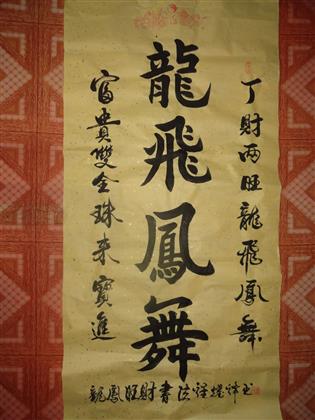 丁財两旺龍飛鳳舞
龍飛鳳舞
富貴雙全珠来寶進
龍鳳旺財書法